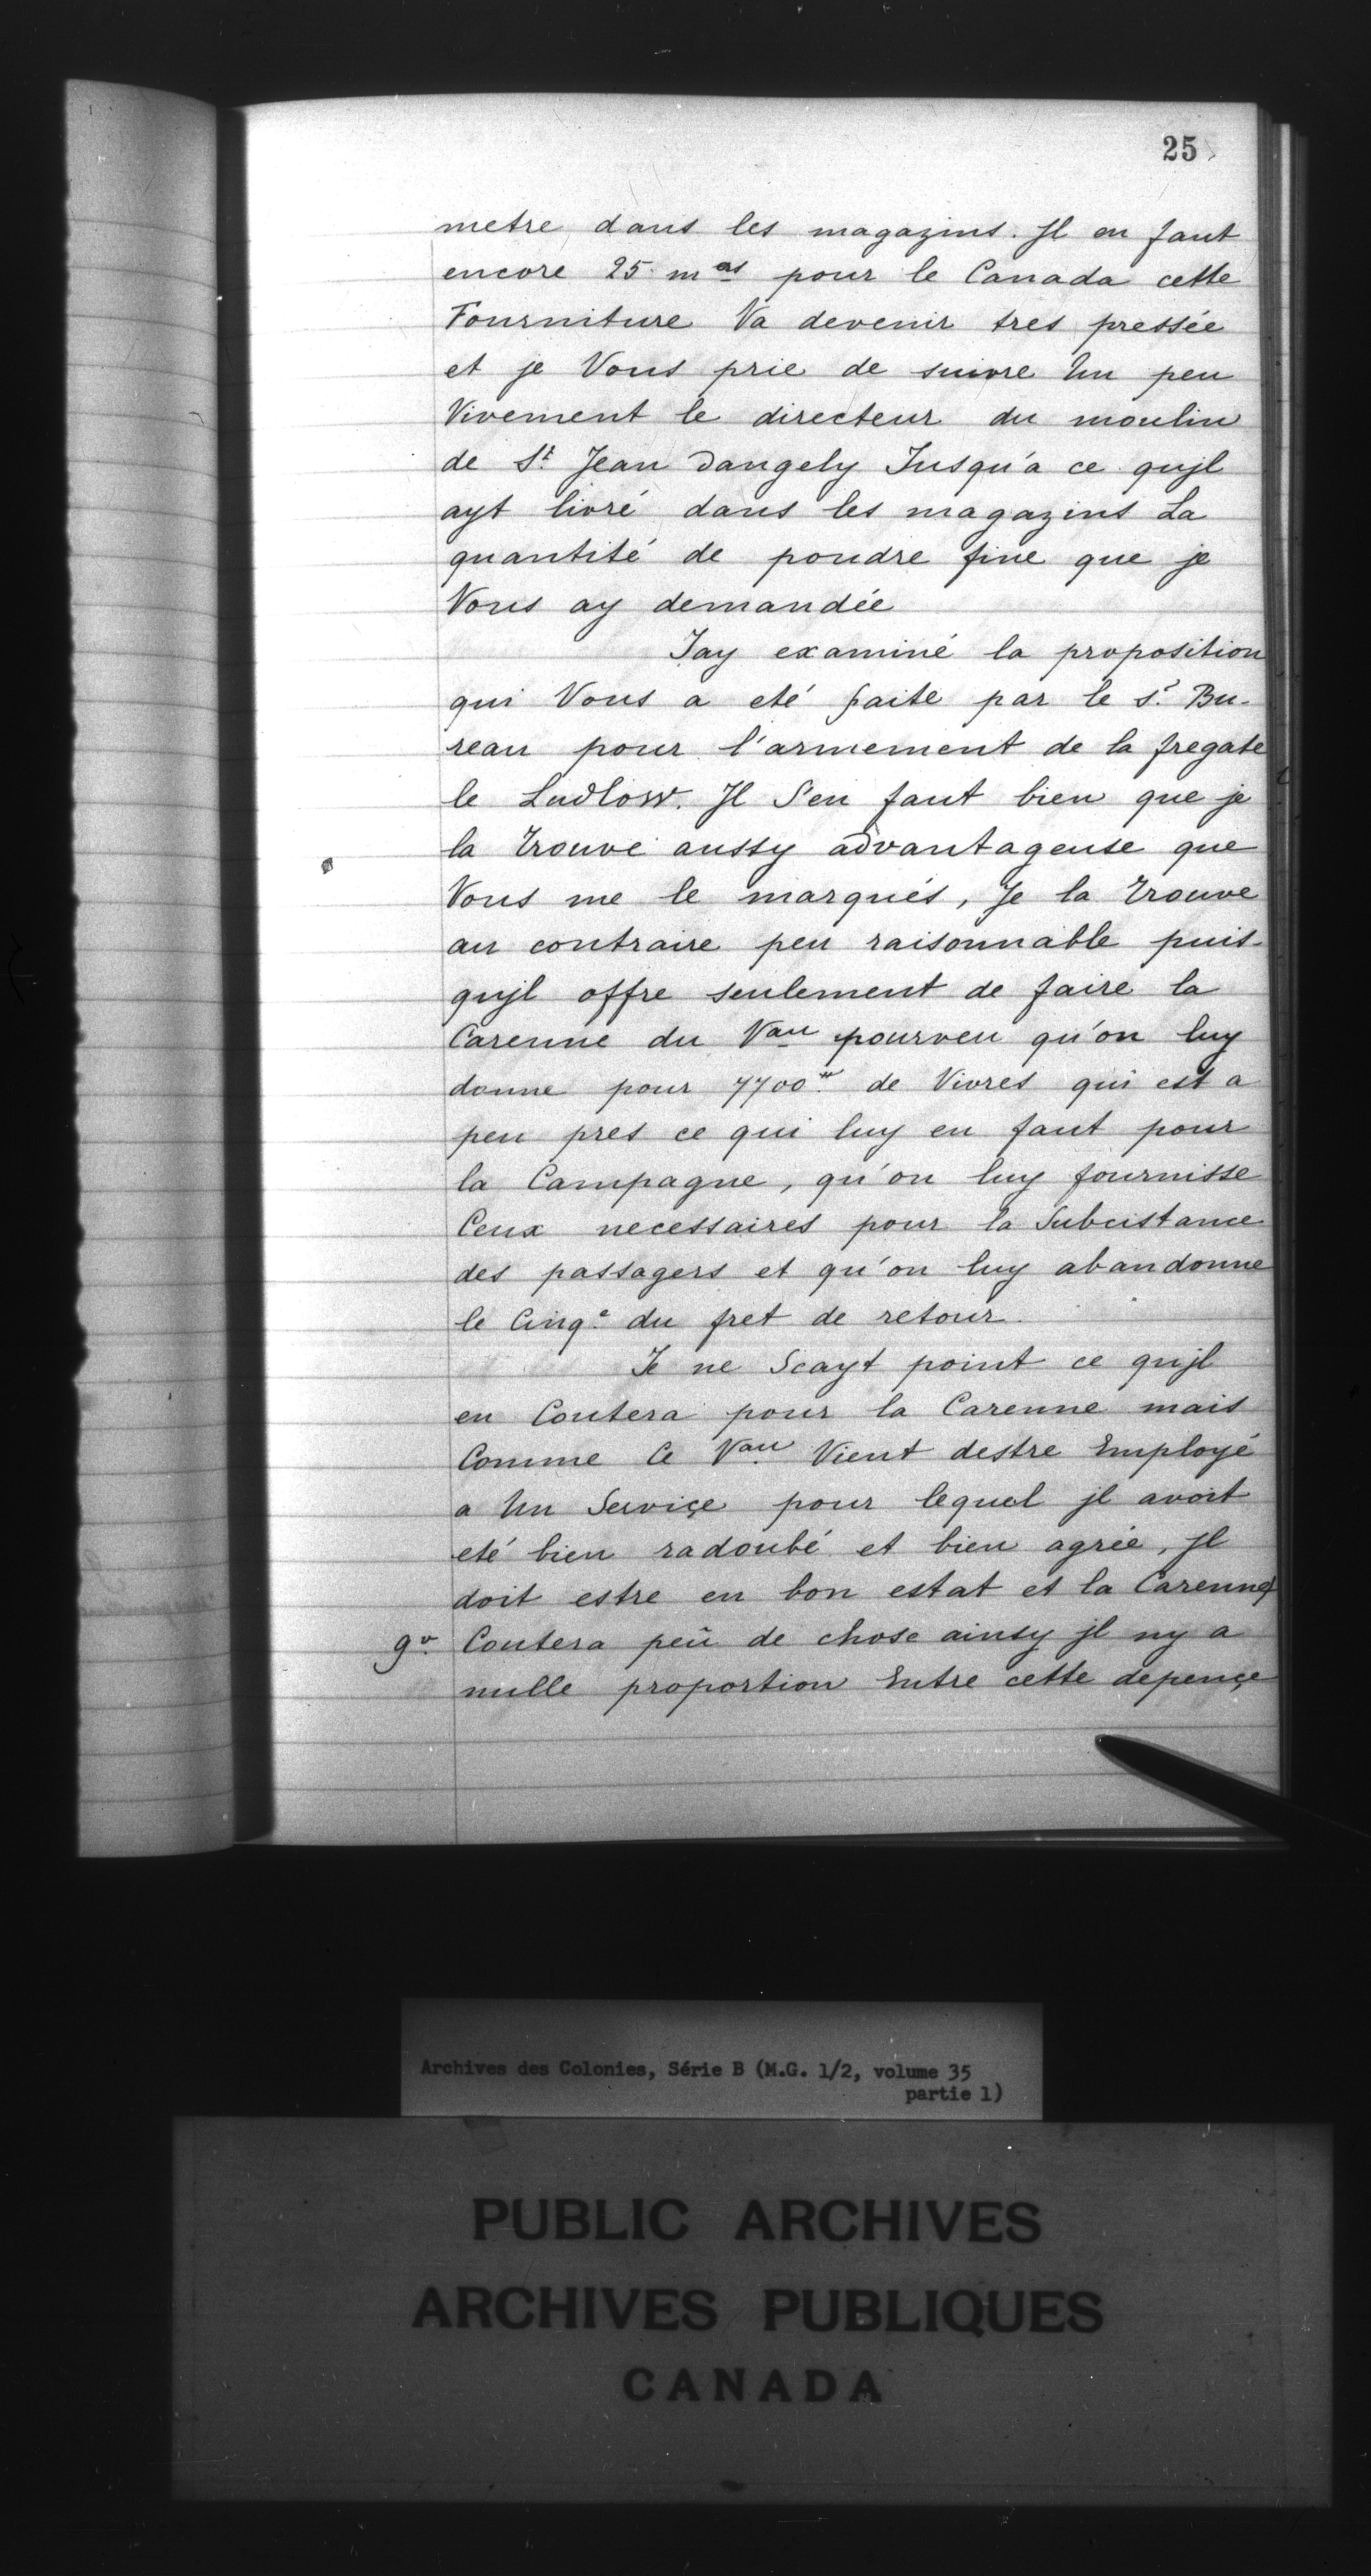 25
metre dans les magazins. Jl en faut
encore 25 m ers pour le Canada cette
Fourniture Va devenir tres pressée
et je Vous prie de suivre Un peu
Vivement le directeur du moulin
de St Jean Dangely Jusqu'a ce qujl
ayt livré dans les magazins La
quantité de poudre fine que je
Vous ay demandée
Jay examiné la proposition
qui Vous a eté faite par le Sr Bu-
reau pour l'armement de la fregate
le Ludlow. Jl S'en faut bien que je
la trouve aussy advantageuse que
Vous me le marqués, Je la trouve
au contraire peu raisonnable puis-
qujl offre seulement de faire la
Carenne du Vau pourveu qu'on luy
donne pour 7700tt de Vivres qui est a
peu pres ce qui luy en faut pour
la Campagne, qu'on luy fournisse
Ceux necessaires pour la Subcistance
des passagers et qu'on luy abandonne
le Cinqe du fret de retour.
Je ne Scayt point ce qujl
en Coutera pour la Carenne mais
Comme Ce Vau Vient destre Employé
a Un Serviçe pour lequel jl avoit
eté bien radoubé et bien agrée, Jl
doit estre en bon estat et la Carenne
9v. Coutera peü de chose ainsy jl ny a
nulle proportion Entre cette depençe
Archives des Colonies, Série B (M.G. 1/2, volume 35
partie 1)
PUBLIC ARCHIVES
ARCHIVES PUBLIQUES
CANADA